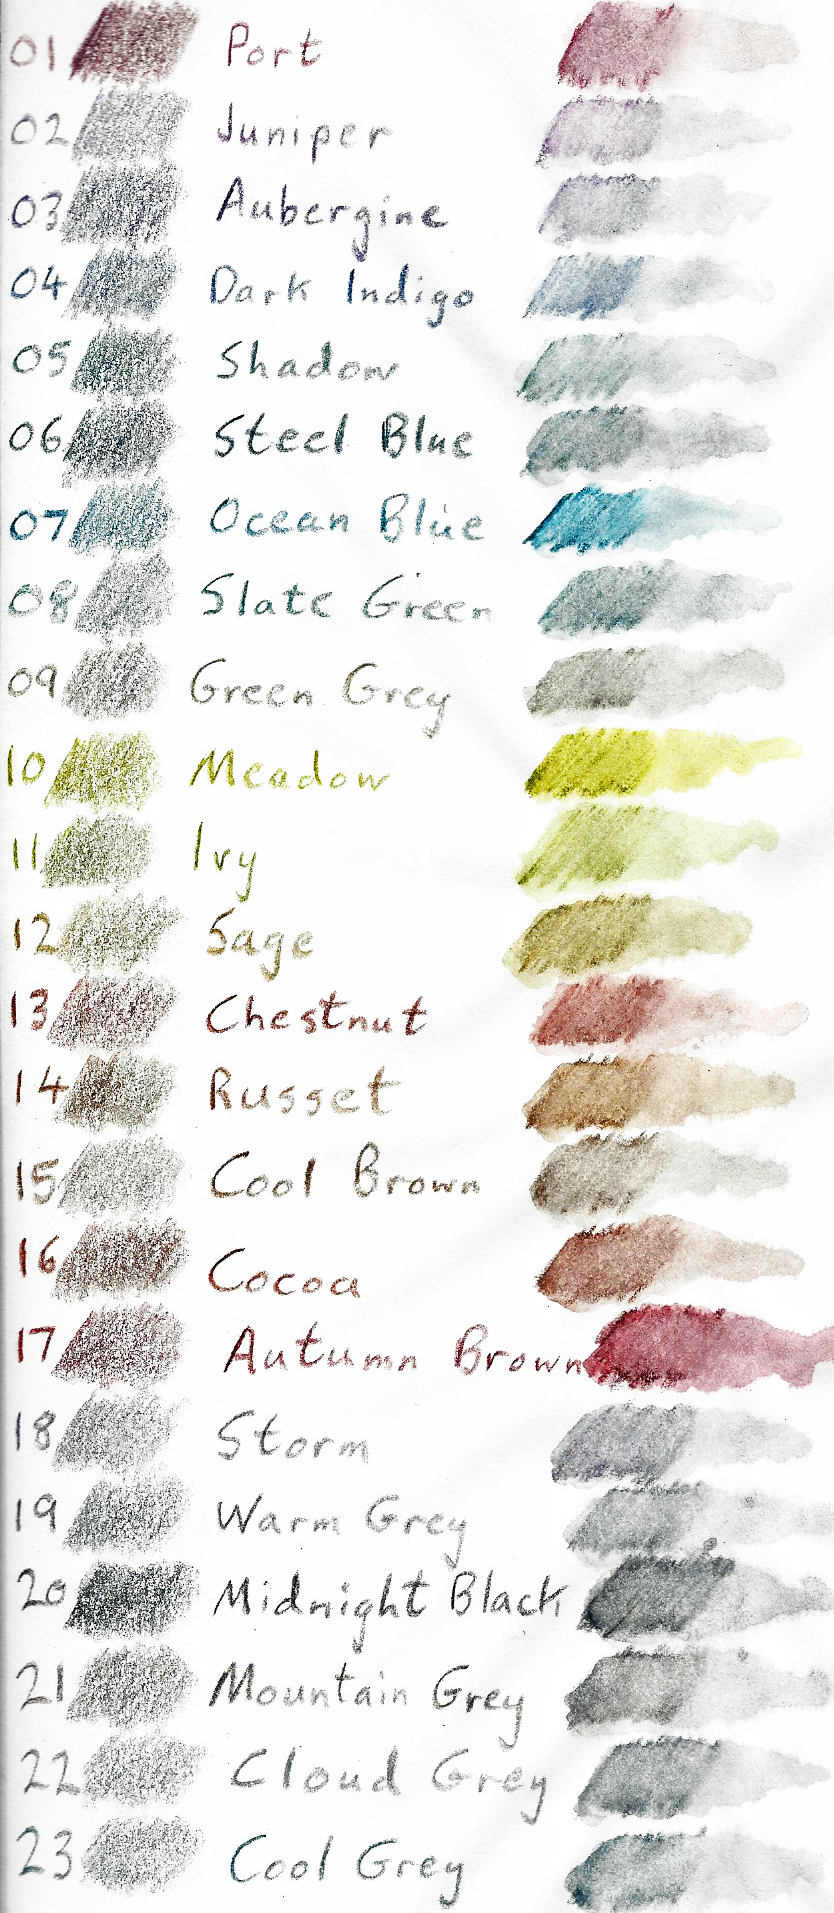 01 Port
02 Juniper
03 Aubergine
04 Dark Indigo
05 Shadow
06 Steel Blue
07 Ocean Blue
08 Slate Green
09 Green Grey
10 Meadow
11 Ivy
12 Sage
13 Chestnut
14 Russet
15 Cool Brown
16 Cocoa
17 Autumn Brown
18 Storm
19 Warm Grey
20 Midnight Black
21 Mountain Grey
22 Cloud Grey
23 Cool Grey